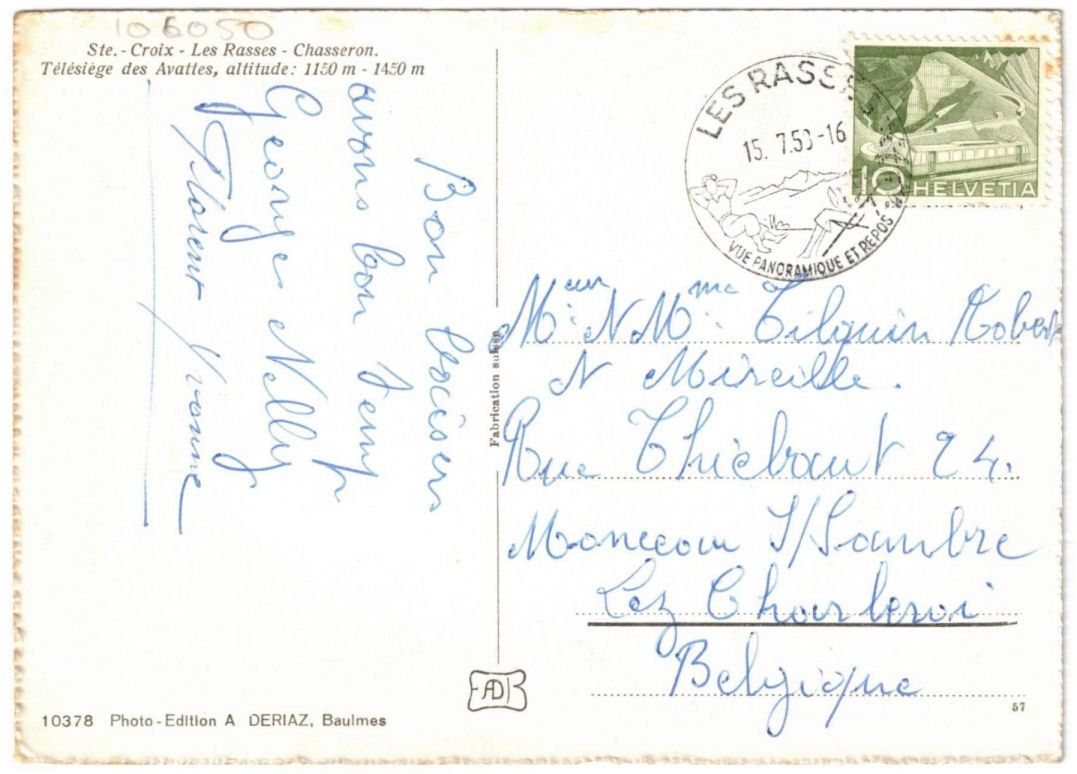 106050
Ste.-Croix - Les Rasses - Chasseron.
Télésiège des Avattes, altitude: 1150 m - 1450 m
Bon baisers
avons bon temp
Georges Nelly
Florent Yvonne
Fabrication suisse
LES RASSES
15. 7.58-16
VUE PANORAMIQUE ET REPOS
10 HELVETIA
Mr N Mme Tilquin Robert
N Mireille.
Rue Thiebaut 24.
Monceau S/Sambre
Lez Charleroi
Belgique
AD
10378 Photo-Edition A DERIAZ, Baulmes
57